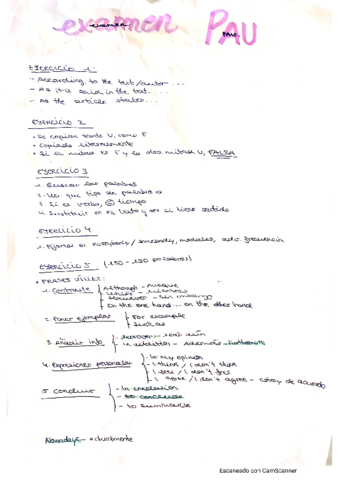 examen PAU
EJERCICIO 1:
- According to the text/autor...
- As it is said in the text....
- As the article states...
EJERCICIO 2
• Se copian tanto V, como F
• Copiado literalmente
• Si la mitad es F y la otra mitad V, FALSA
EJERCICIO 3
1. Buscar las palabras
2. Ver que tipo de palabra es
3. Si es verbo, tiempo
4. Sustituir en el texto y ver si tiene sentido
EJERCICIO 4
1. Fijarse en everybody / somebody, modales, adv. frecuencia
EJERCICIO 5 (130-150 palabras)
• FRASES ÚTILES:
1. Contraste
Although - aunque
- mientras
However - sin embargo
On the one hand... on the other hand
2. Poner ejemplos
For example
Such as
3. Añadir info
Moreover - más aún
In addition - Además - Furthermore
4. Expresiones personales
- In my opinion
- I think / I don't think
- I / I don't
- I agree / I don't agree - estoy de acuerdo
5. Concluir
- In conclusion
- to conclude
- to summarize
Nowadays - actualmente
Escaneado con CamScanner